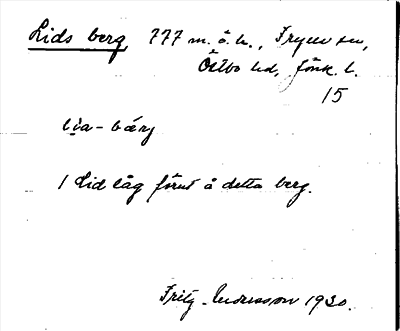 Lids berg, 777 m. ö. h., Fryele sn,
Östbo hd, Jönk. l.
15
lia-bärj
1 Lid låg förut å detta berg.
Fritz Andersson 1930.